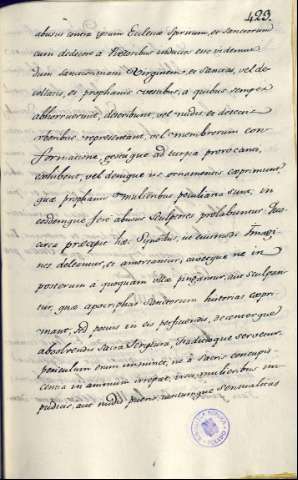 423.
abusus contra ipsum Ecclesiæ Spiritum, et Sanctorum
cum dedecore à Pictoribus inductos esse videmus
dum sanctissimam Virginem, et Sanctas, vel de
collatis, et prophanis vestibus, à quibus semper
abhorruerunt, describunt, vel nudis et descen
representant, vel membrorum con
formatione, gestúque ad turpia provocanti,
exhibent, vel denique iis ornamentis exprimunt,
quæ prophanis mulieribus peculiaria sunt, in
eosdemque fere abusus Sculptores prolabuntur.
circa præcipit hæc Synodus, ut eiusmodi Imagi
nes deleantur, et amoveantur, utque ne in
posterum à quoquam illæ pingantur, aut sculpan
tur, quæ apocriphas Sanctorum historias expri
mant, sed potius in eis perficiendis,
Sacræ Scriptura, Traditioque servetur.
periculum enim imminet, ne à sacris concupis
centia in animum irrepat, si in mulieribus im
pudicis, aut nudis pueris, tantumque sensualitas